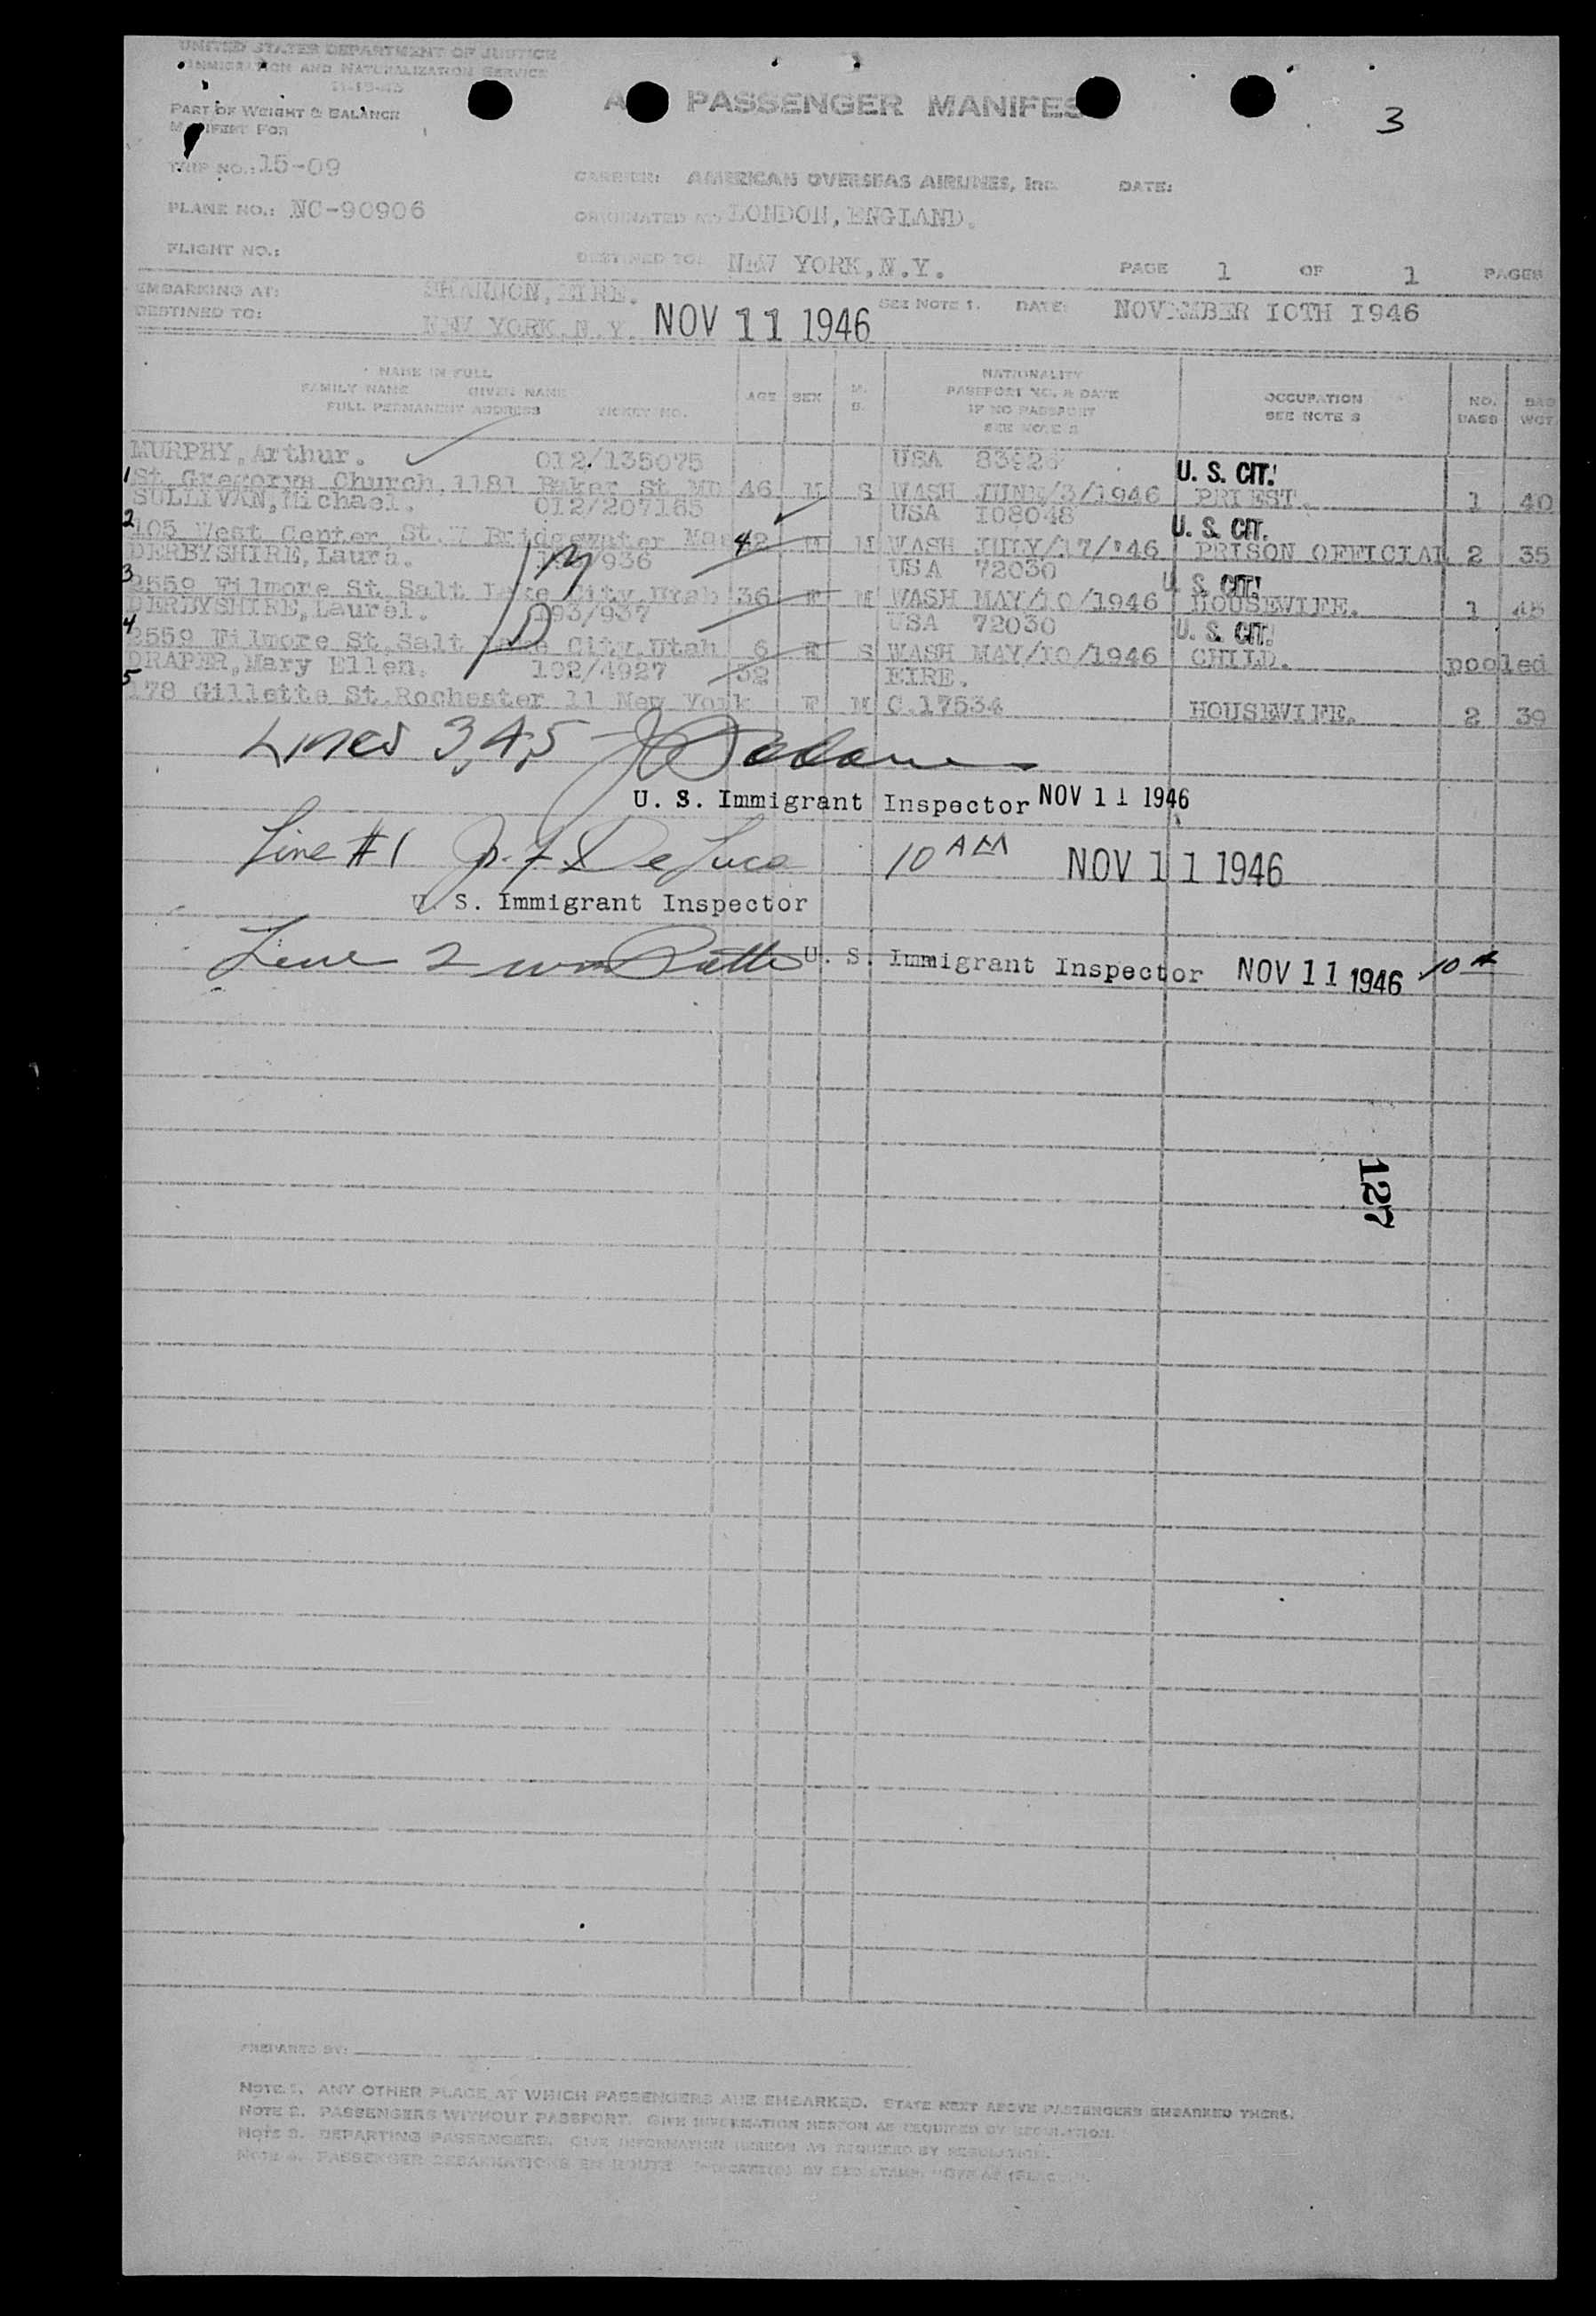 UNITED STATES DEPARTMENT OF JUSTICE
IMMIGRATION AND NATURALIZATION SERVICE
PART OF WEIGHT & BALANCE
MANIFEST FOR
PASSENGER MANIFES
3
TRIP NO.: 15-09
CARRIER: AMERICAN OVERSEAS AIRLINES, Inc. DATE:
PLANE NO.: NC-90906
ORIGINATED AT LONDON, ENGLAND.
FLIGHT NO.:
DESTINED TO: NEW YORK, N.Y. PAGE 1 OF 1 PAGES
EMBARKING AT: SHANNON, EIRE. SEE NOTE 1. DATE: NOVEMBER IOTH I946
DESTINED TO: NEW YORK, N.Y. NOV 11 1946
NAME IN FULL
FAMILY NAME GIVEN NAME
FULL PERMANENT ADDRESS TICKET NO.
AGE SEX M. S.
NATIONALITY
PASSPORT NO. & DATE
IF NO PASSPORT
SEE NOTE 2
OCCUPATION
SEE NOTE 3
NO. BAGS
BAG WGT.
MURPHY, Arthur. 012/135075 USA
1 St Gregorys Church, 1181 Baker St MD 46 M S WASH JUNE/3/1946 U. S. CIT. PRIEST. 1 40
SULLIVAN, Michael. 012/207165 USA I08048
2 405 West Center St. W Bridgewater 42 M M WASH JULY/17/'46 U. S. CIT. PRISON OFFICIAL 2 35
DERBYSHIRE, Laura. 936 USA 72030
3 2559 Filmore St Salt Lake City Utah 36 F M WASH MAY/10/1946 U. S. CIT. HOUSEWIFE. 1 48
DERBYSHIRE, Laurel. 193/937 USA 72030
4 2559 Filmore St, Salt Lake City, Utah 6 F S WASH MAY/10/1946 U. S. CIT. CHILD. pooled
DRAPER, Mary Ellen. 192/4927 52 EIRE.
5 178 Gillette St, Rochester 11 New York F M C.17534 HOUSEWIFE. 2 39
Lines 3,4,5
U. S. Immigrant Inspector NOV 11 1946
Line #1 De Luca 10 AM NOV 11 1946
U. S. Immigrant Inspector
Line 2 U. S. Immigrant Inspector NOV 11 1946 10
127
PREPARED BY:
NOTE 1. ANY OTHER PLACE AT WHICH PASSENGERS ARE EMBARKED. STATE NEXT ABOVE PASSENGERS EMBARKED THERE.
NOTE 2. PASSENGERS WITHOUT PASSPORT. GIVE INFORMATION HEREON AS REQUIRED BY REGULATION.
NOTE 3. DEPARTING PASSENGERS. GIVE INFORMATION HEREON AS REQUIRED BY REGULATION.
NOTE 4. PASSENGER DEBARKATIONS EN ROUTE